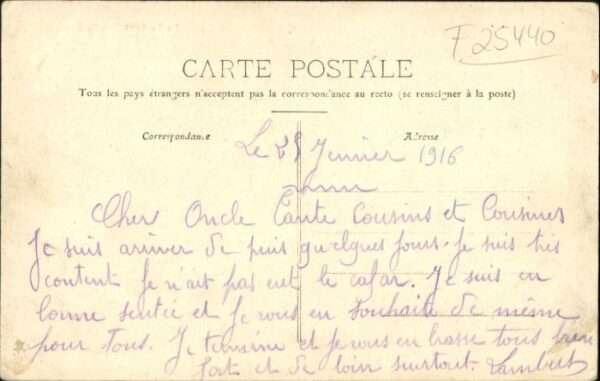 F 25440
CARTE POSTALE
Tous les pays étrangers n'acceptent pas la correspondance au recto (se renseigner à la poste)
Correspondance
Adresse
Le Jenvier 1916
Cher Oncle Tante Cousins et Cousines
Je suis ariver de puis quelques jours. Je suis très
content Je n'ait pas eut le cafar. Je suis en
bonne sentée et je vous en souhaite de même
pour tous. Je termine et je vous en brasse tous bien
fort et de loin surtout. Lambert